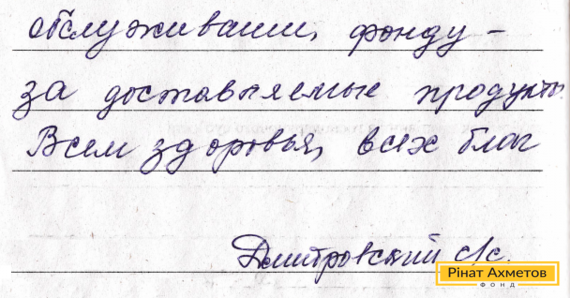 обслуживании, фонду –
за доставляемые продукты.
Всем здоровья, всех благ
Дмитровский
Рінат Ахметов
ФОНД